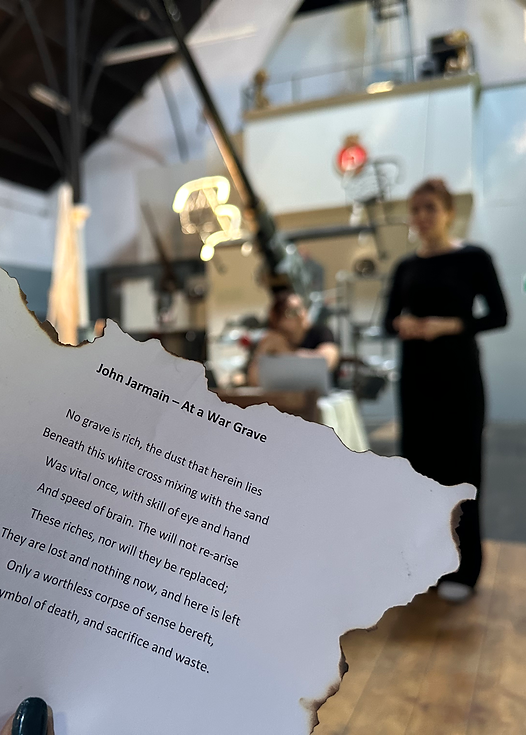 John Jarmain – At a War Grave
No grave is rich, the dust that herein lies
Beneath this white cross mixing with the sand
Was vital once, with skill of eye and hand
And speed of brain. The will not re-arise
These riches, nor will they be replaced;
They are lost and nothing now, and here is left
Only a worthless corpse of sense bereft,
ymbol of death, and sacrifice and waste.